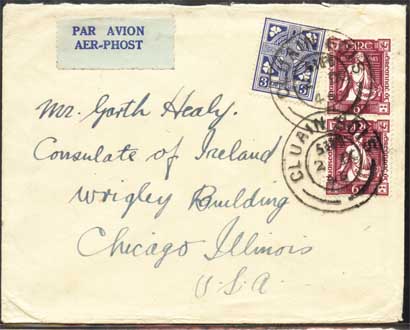 PAR AVION
AER-PHOST
Mr. Garth Healy.
Consulate of Ireland
Wrigley Building
Chicago Illinois
U.S.A.
CLUAIN
ÉIRE